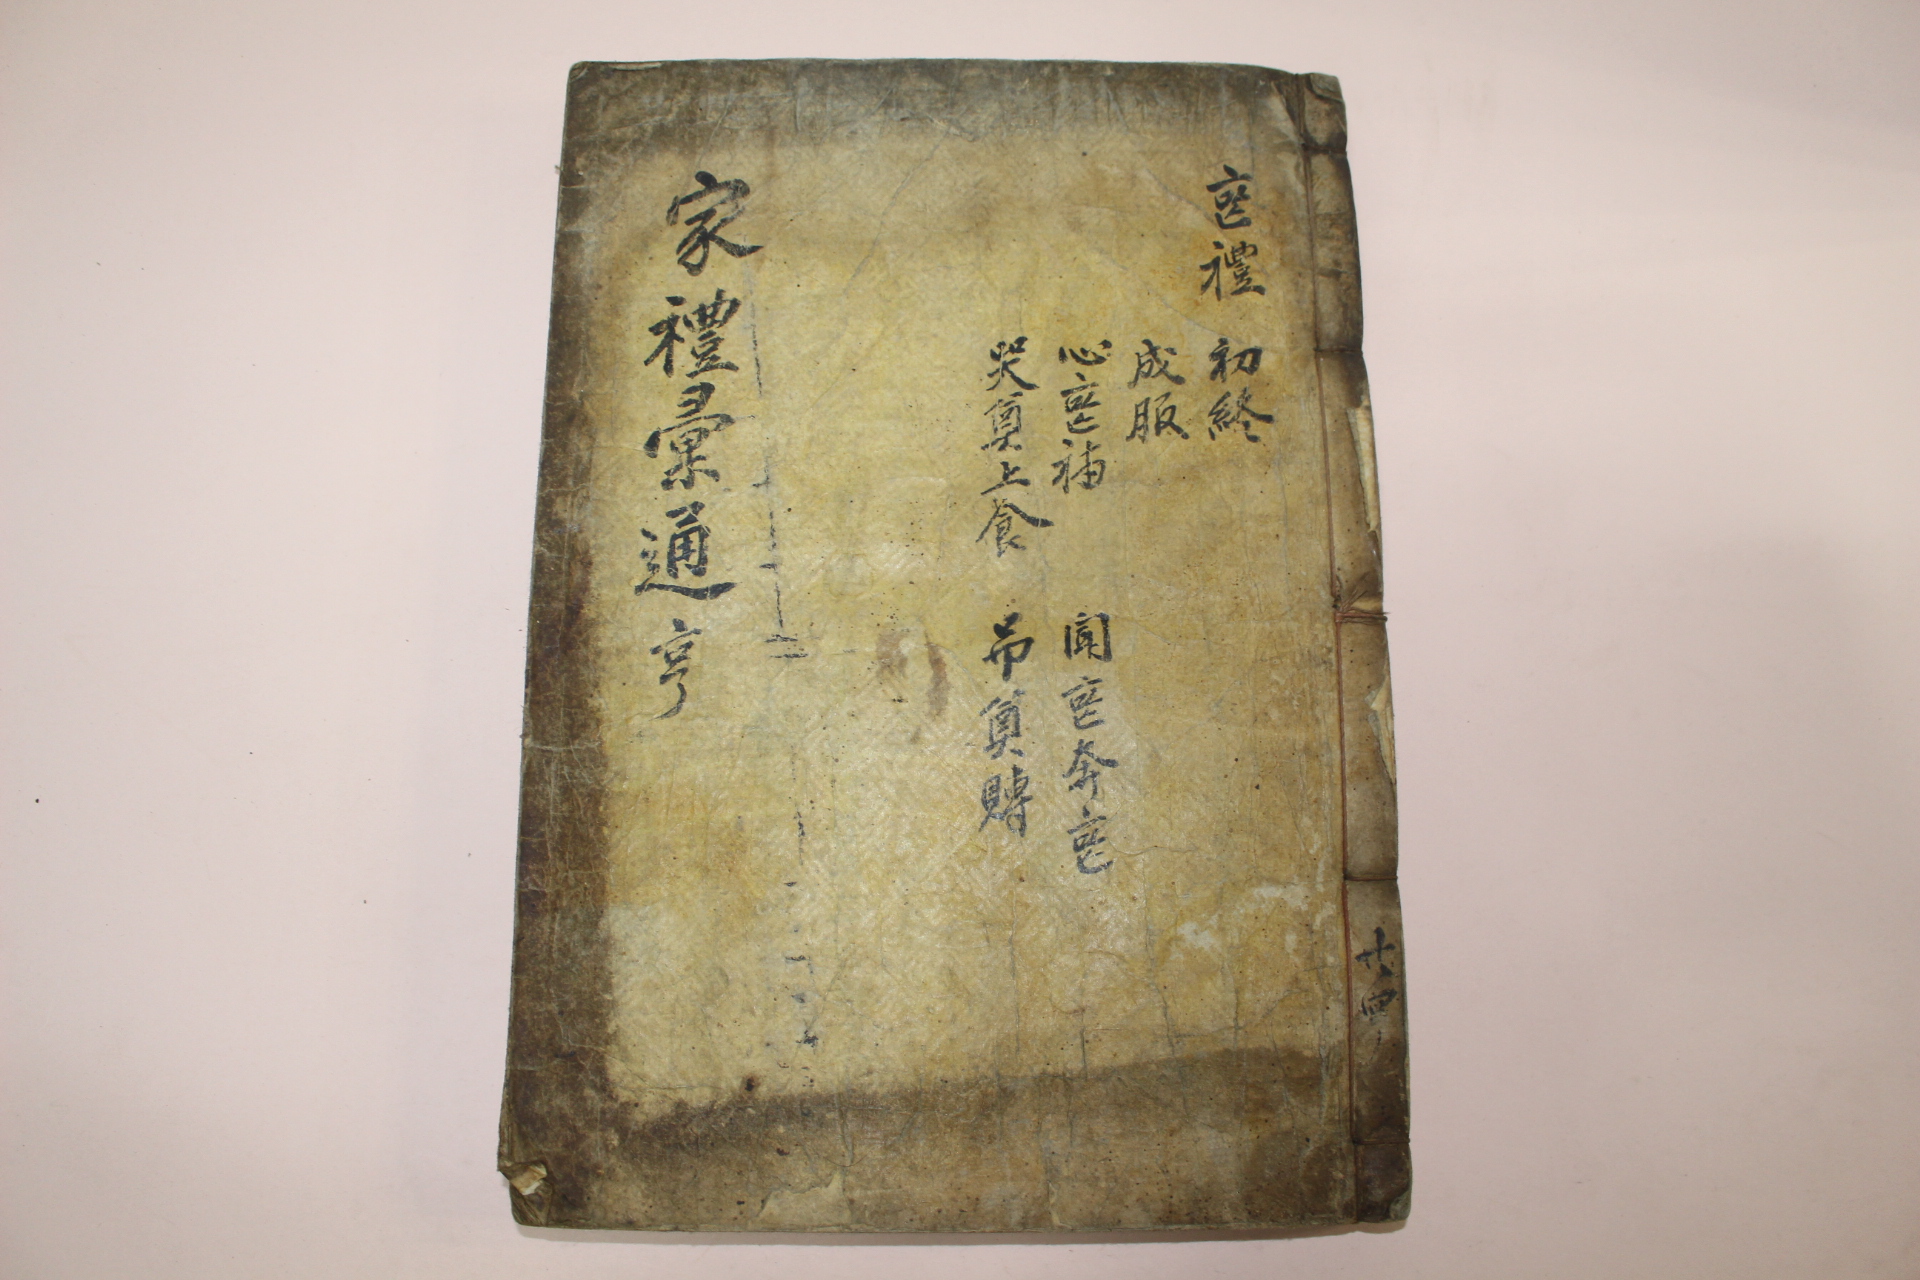 喪禮 初終
成服
心喪補 聞喪奔喪
哭奠上食 吊奠賻
家禮彙通 亨
廿四